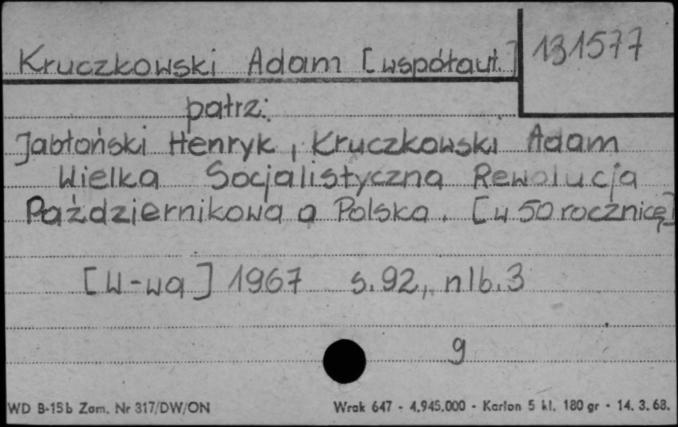 Kruczkowski Adam [współaut.] 131577
patrz:
Jabłoński Henryk, Kruczkowski Adam
Wielka Socjalistyczna Rewolucja
Październikowa a Polska. [w 50 rocznicę]
[W-wa] 1967 s.92, nlb.3
g
WD B-15b Zam. Nr 317/DW/ON Wrak 647 - 4.945.000 - Karton 5 kl. 180 gr - 14. 3. 68.